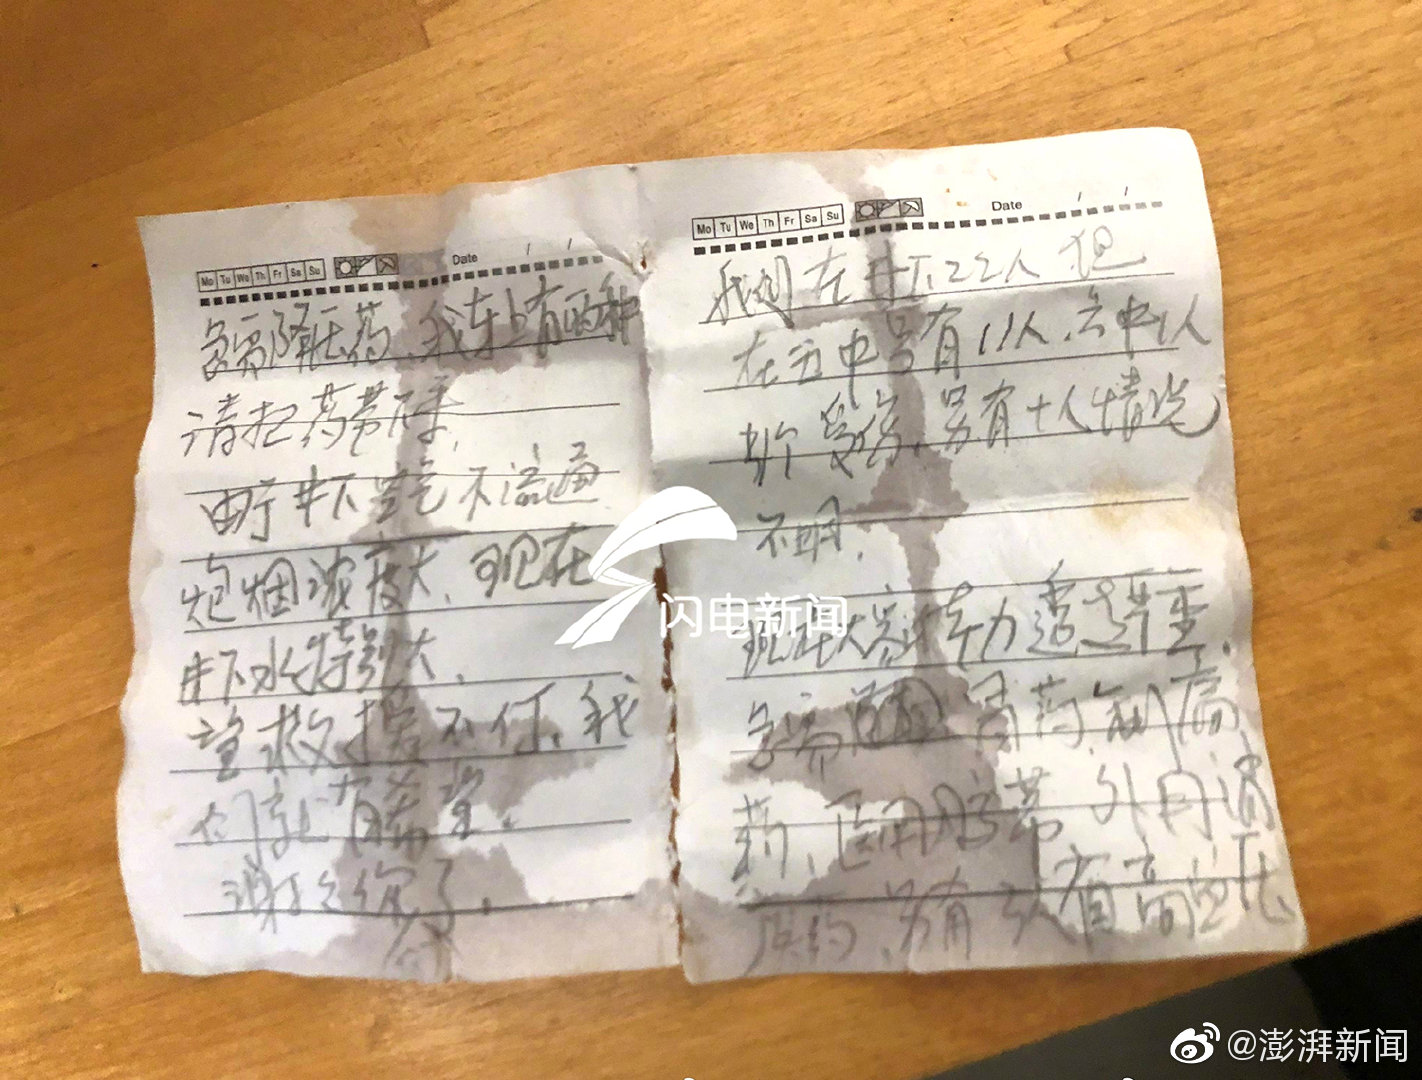 Mo Tu We Th Fr Sa Su Date
急需降压药、我车上有两种
请把药带下来.
由于井下空气不流通
炮烟浓度大、现在
井下水特别大、
望救援不停、我
们就有希望.
谢谢你们了.
Mo Tu We Th Fr Sa Su Date
我们在井下22人 但
在五中只有11人、六中1人
受伤、另有十人情况
不明.
现在大家体力透支严重.
急需 胃药、制痛
药、医用胶带、外用消
炎药、另有3人有高血压
闪电新闻
@澎湃新闻